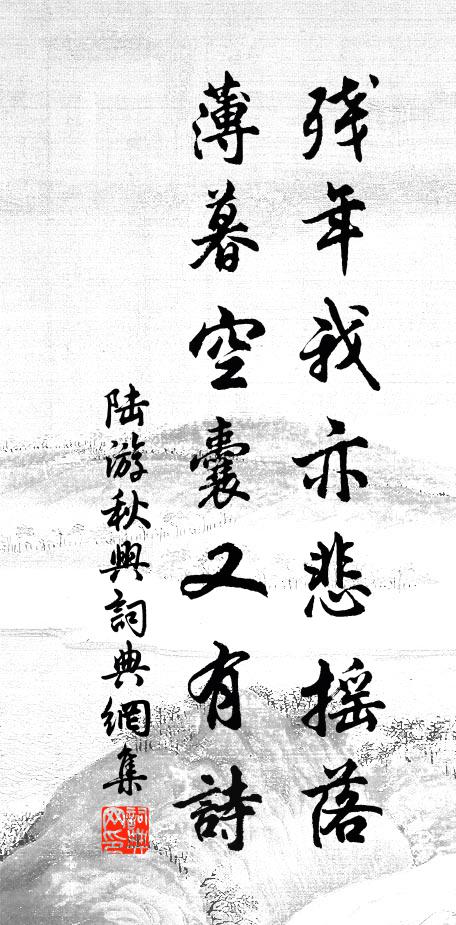 残年我亦悲摇落
薄暮空囊又有詩
陆游秋興詞典網集
詞典网印